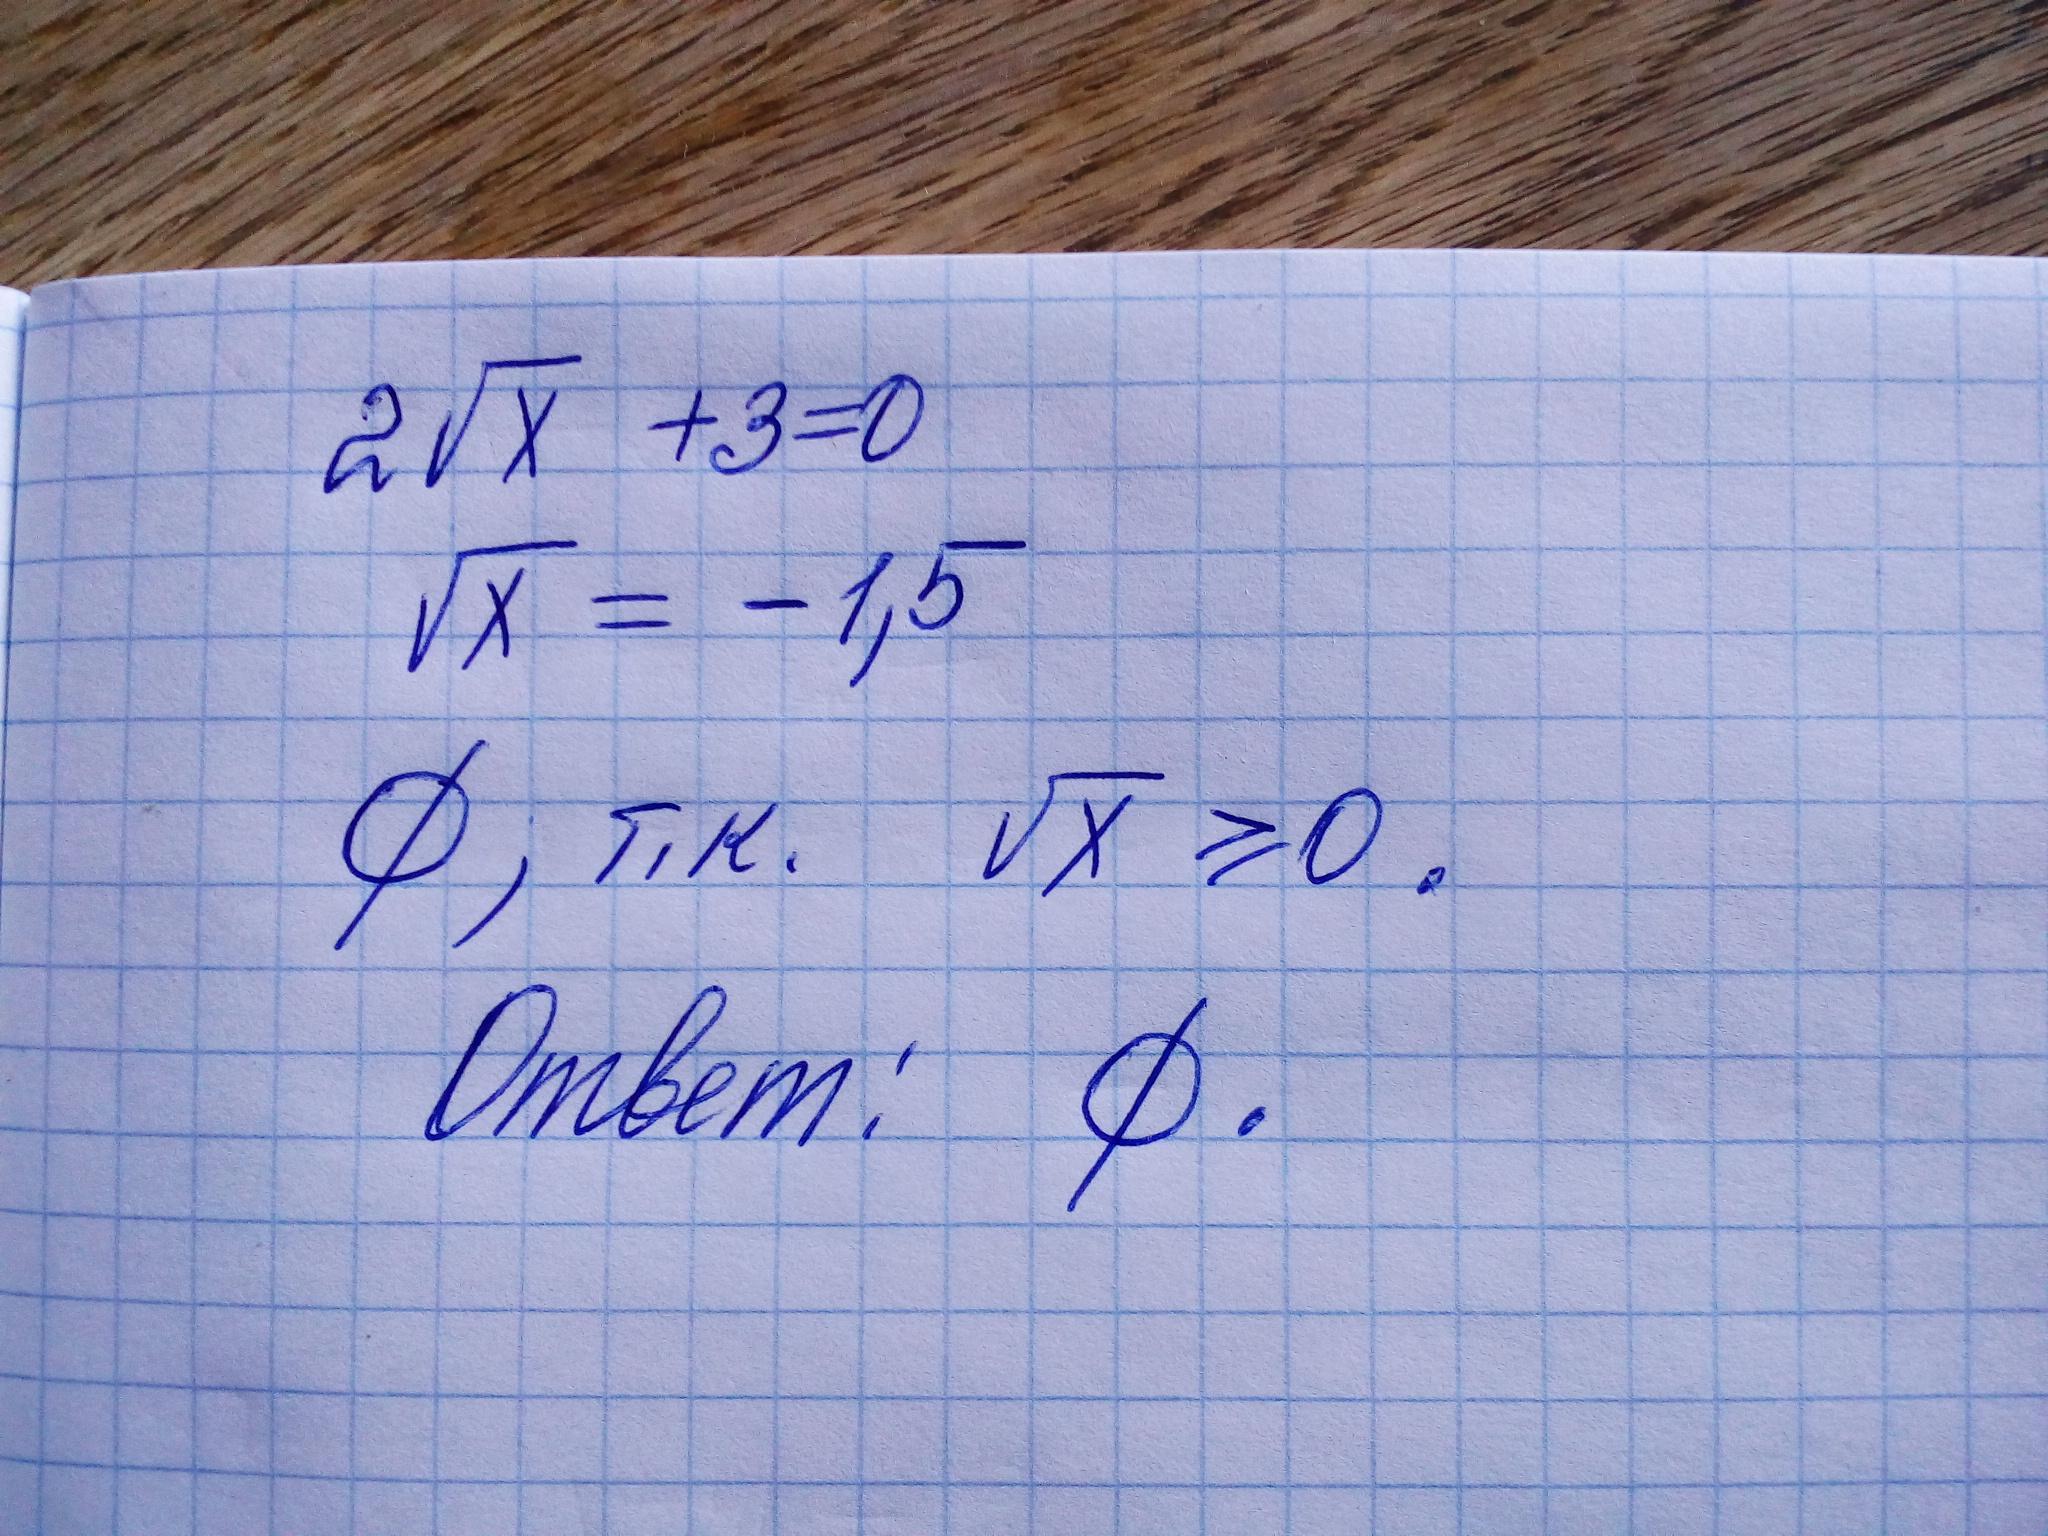 2√x +3=0
√x = -1,5
∅, т.к. √x ⩾ 0.
Ответ: ∅.